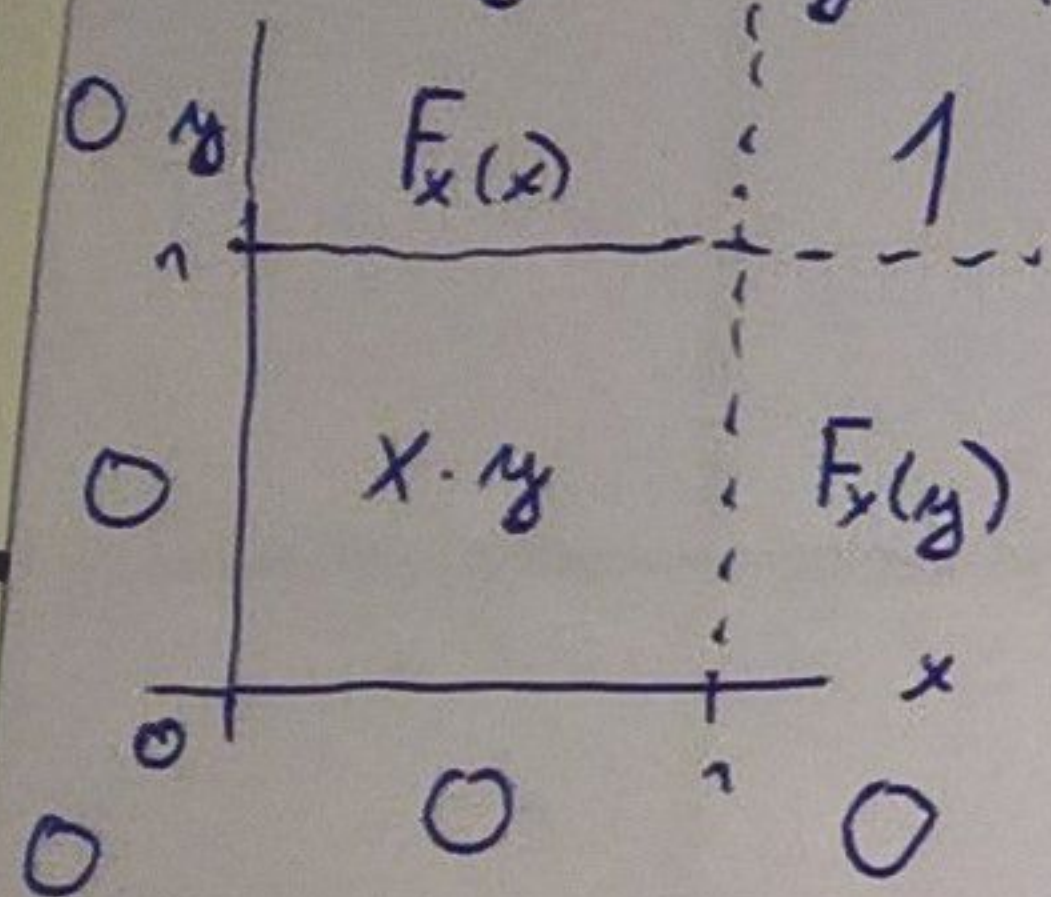 0 y F_x(x) 1
1
0 x·y F_y(y)
x
0 1
0 0 0